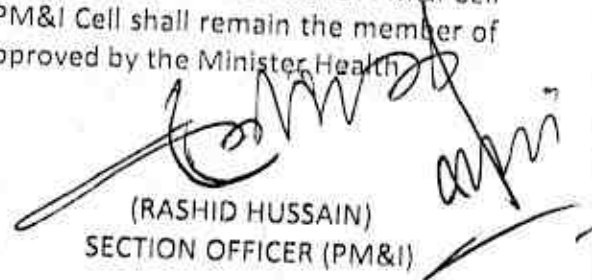 PM&I Cell shall remain the member of
pproved by the Minister Health
(RASHID HUSSAIN)
SECTION OFFICER (PM&I)